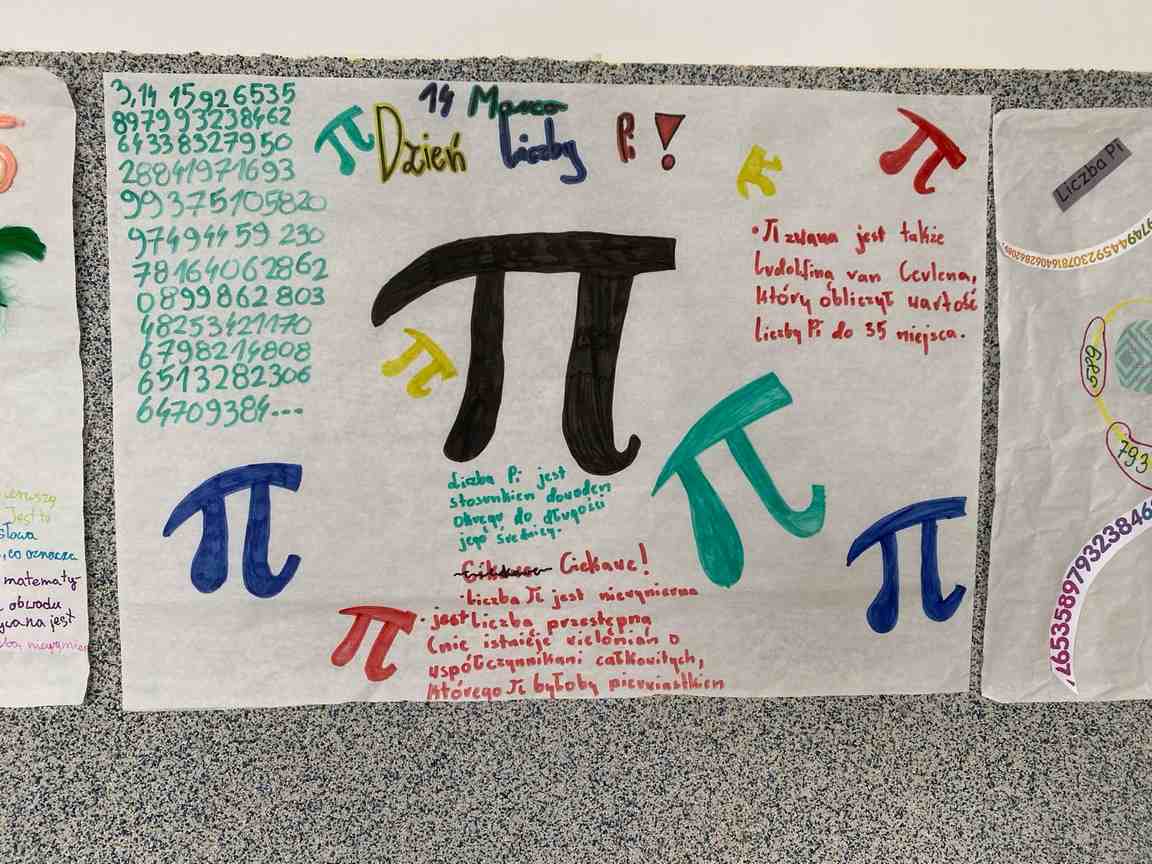 3,14 15926535
897993238462
64338327950
28841971693
99375105820
97494459 230
78164062862
0899862 803
48253421170
6798214808
6513282306
64709384...
14 Marca
Dzień Liczby Pi!
π
π
π
π
π
• π zwana jest także
Ludolfiną van Ceulena,
który obliczył wartość
liczby Pi do 35 miejsca.
π
Liczba Pi jest
stosunkiem
okręgu do długości
jego średnicy.
Ciekawe!
• Liczba π jest niewymierna
• jest Liczba przestępna
(nie istnieje wielomian o
współczynnikami całkowitych,
którego π byłoby pierwiastkiem
π
π
π
Jest to
słowa
, co oznacza
matematy-
obwodu
jest
Liczba Pi
589
793
26535897932384